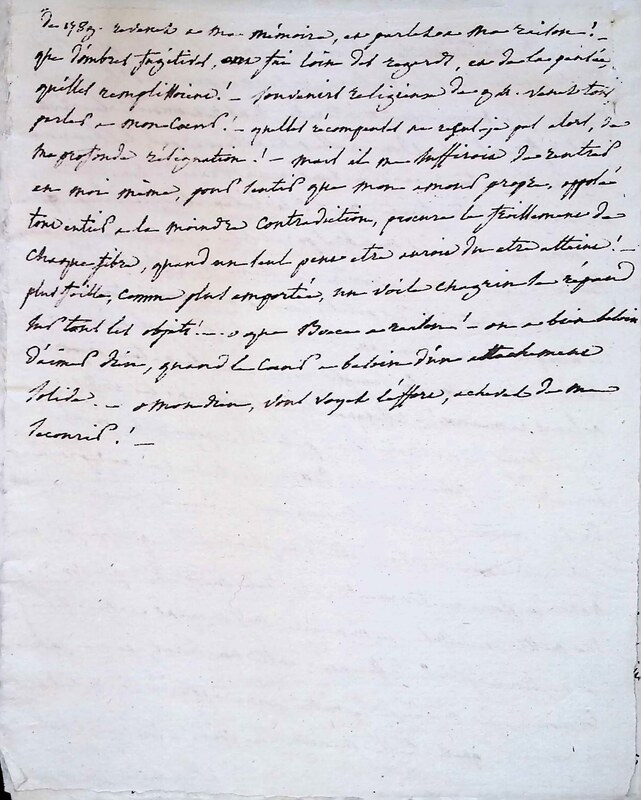 de 1789. revenés a ma mémoire, et parlés a ma raison! –
que d'ombres fugitives, ont fui loin des regards, et de la pensée,
qu'elles remplissoient! – souvenirs religieux de venés tous
parler a mon cœur! – quelles récompenses ne reçus-je pas alors, de
ma profonde résignation! – mais il me suffiroit de rentrer
en moi même, pour sentir que mon amour propre, opposé
tout entier a la moindre contradiction, procure le tressaillement de
chaque fibre, quand un seul peut etre auroit du etre atteint! –
plus foible, comme plus emportée, un voile chagrin se répand
sur tous les objets! – o que a raison! – on a bien besoin
d'aimer dieu, quand le cœur a besoin d'un attachement
solide. – o mon dieu, vous voyez l'effort, achevez de me
secourir! –